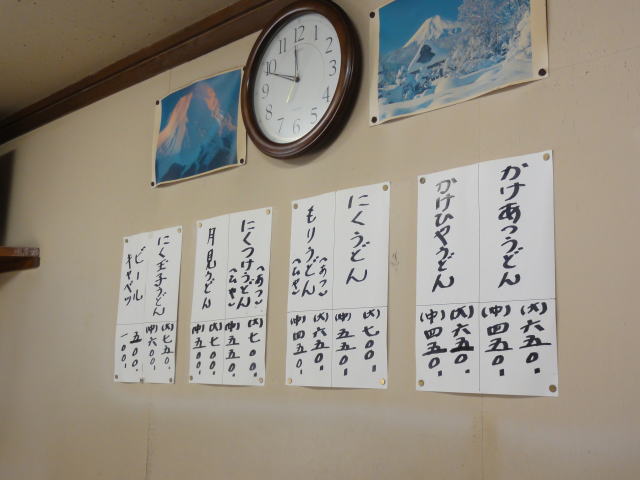 12
1
2
3
4
5
6
7
8
9
10
11
かけあつうどん
(大)六五〇.
(中)四五〇.
かけひやうどん
(大)六五〇.
(中)四五〇.
にくうどん
(大)七〇〇.
(中)五五〇.
もりうどん(あつ)(ひや)
(大)六五〇.
(中)四五〇.
にくつけうどん(あつ)(ひや)
(大)七〇〇.
(中)五五〇.
月見うどん
(大)七〇〇.
(中)五〇〇.
にく玉子うどん
(大)七五〇.
(中)六〇〇.
ビール
五〇〇.
キャベツ